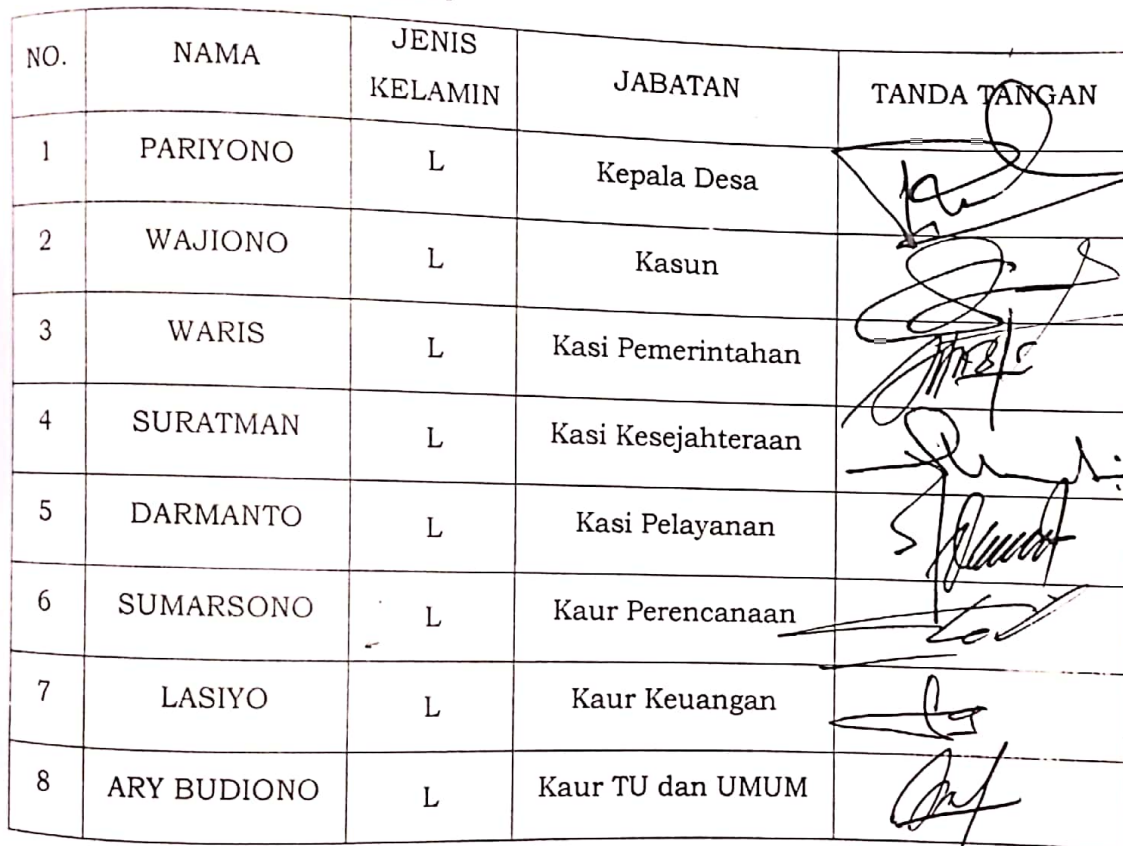 NO. NAMA JENIS KELAMIN JABATAN TANDA TANGAN
1 PARIYONO L Kepala Desa
2 WAJIONO L Kasun
3 WARIS L Kasi Pemerintahan
4 SURATMAN L Kasi Kesejahteraan
5 DARMANTO L Kasi Pelayanan
6 SUMARSONO L Kaur Perencanaan
7 LASIYO L Kaur Keuangan
8 ARY BUDIONO L Kaur TU dan UMUM